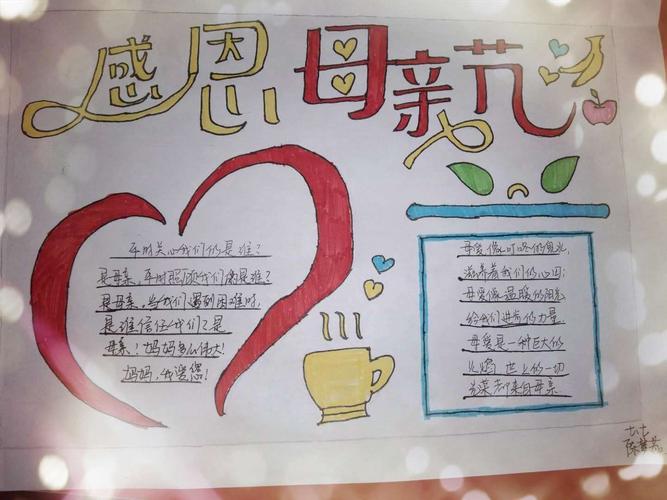 感恩母亲节
平时关心我们的是谁？
是母亲，平时照顾我们的是谁？
是母亲，当我们遇到困难时，
是谁信任我们？是
母亲！妈妈多么伟大！
妈妈，我爱您！
母爱像叮咚的泉水，
滋养着我们的心田；
母爱像温暖的阳光
给我们进步的力量
母爱是一种巨大的
火焰 世上的一切
光荣都来自母亲
七七
陈